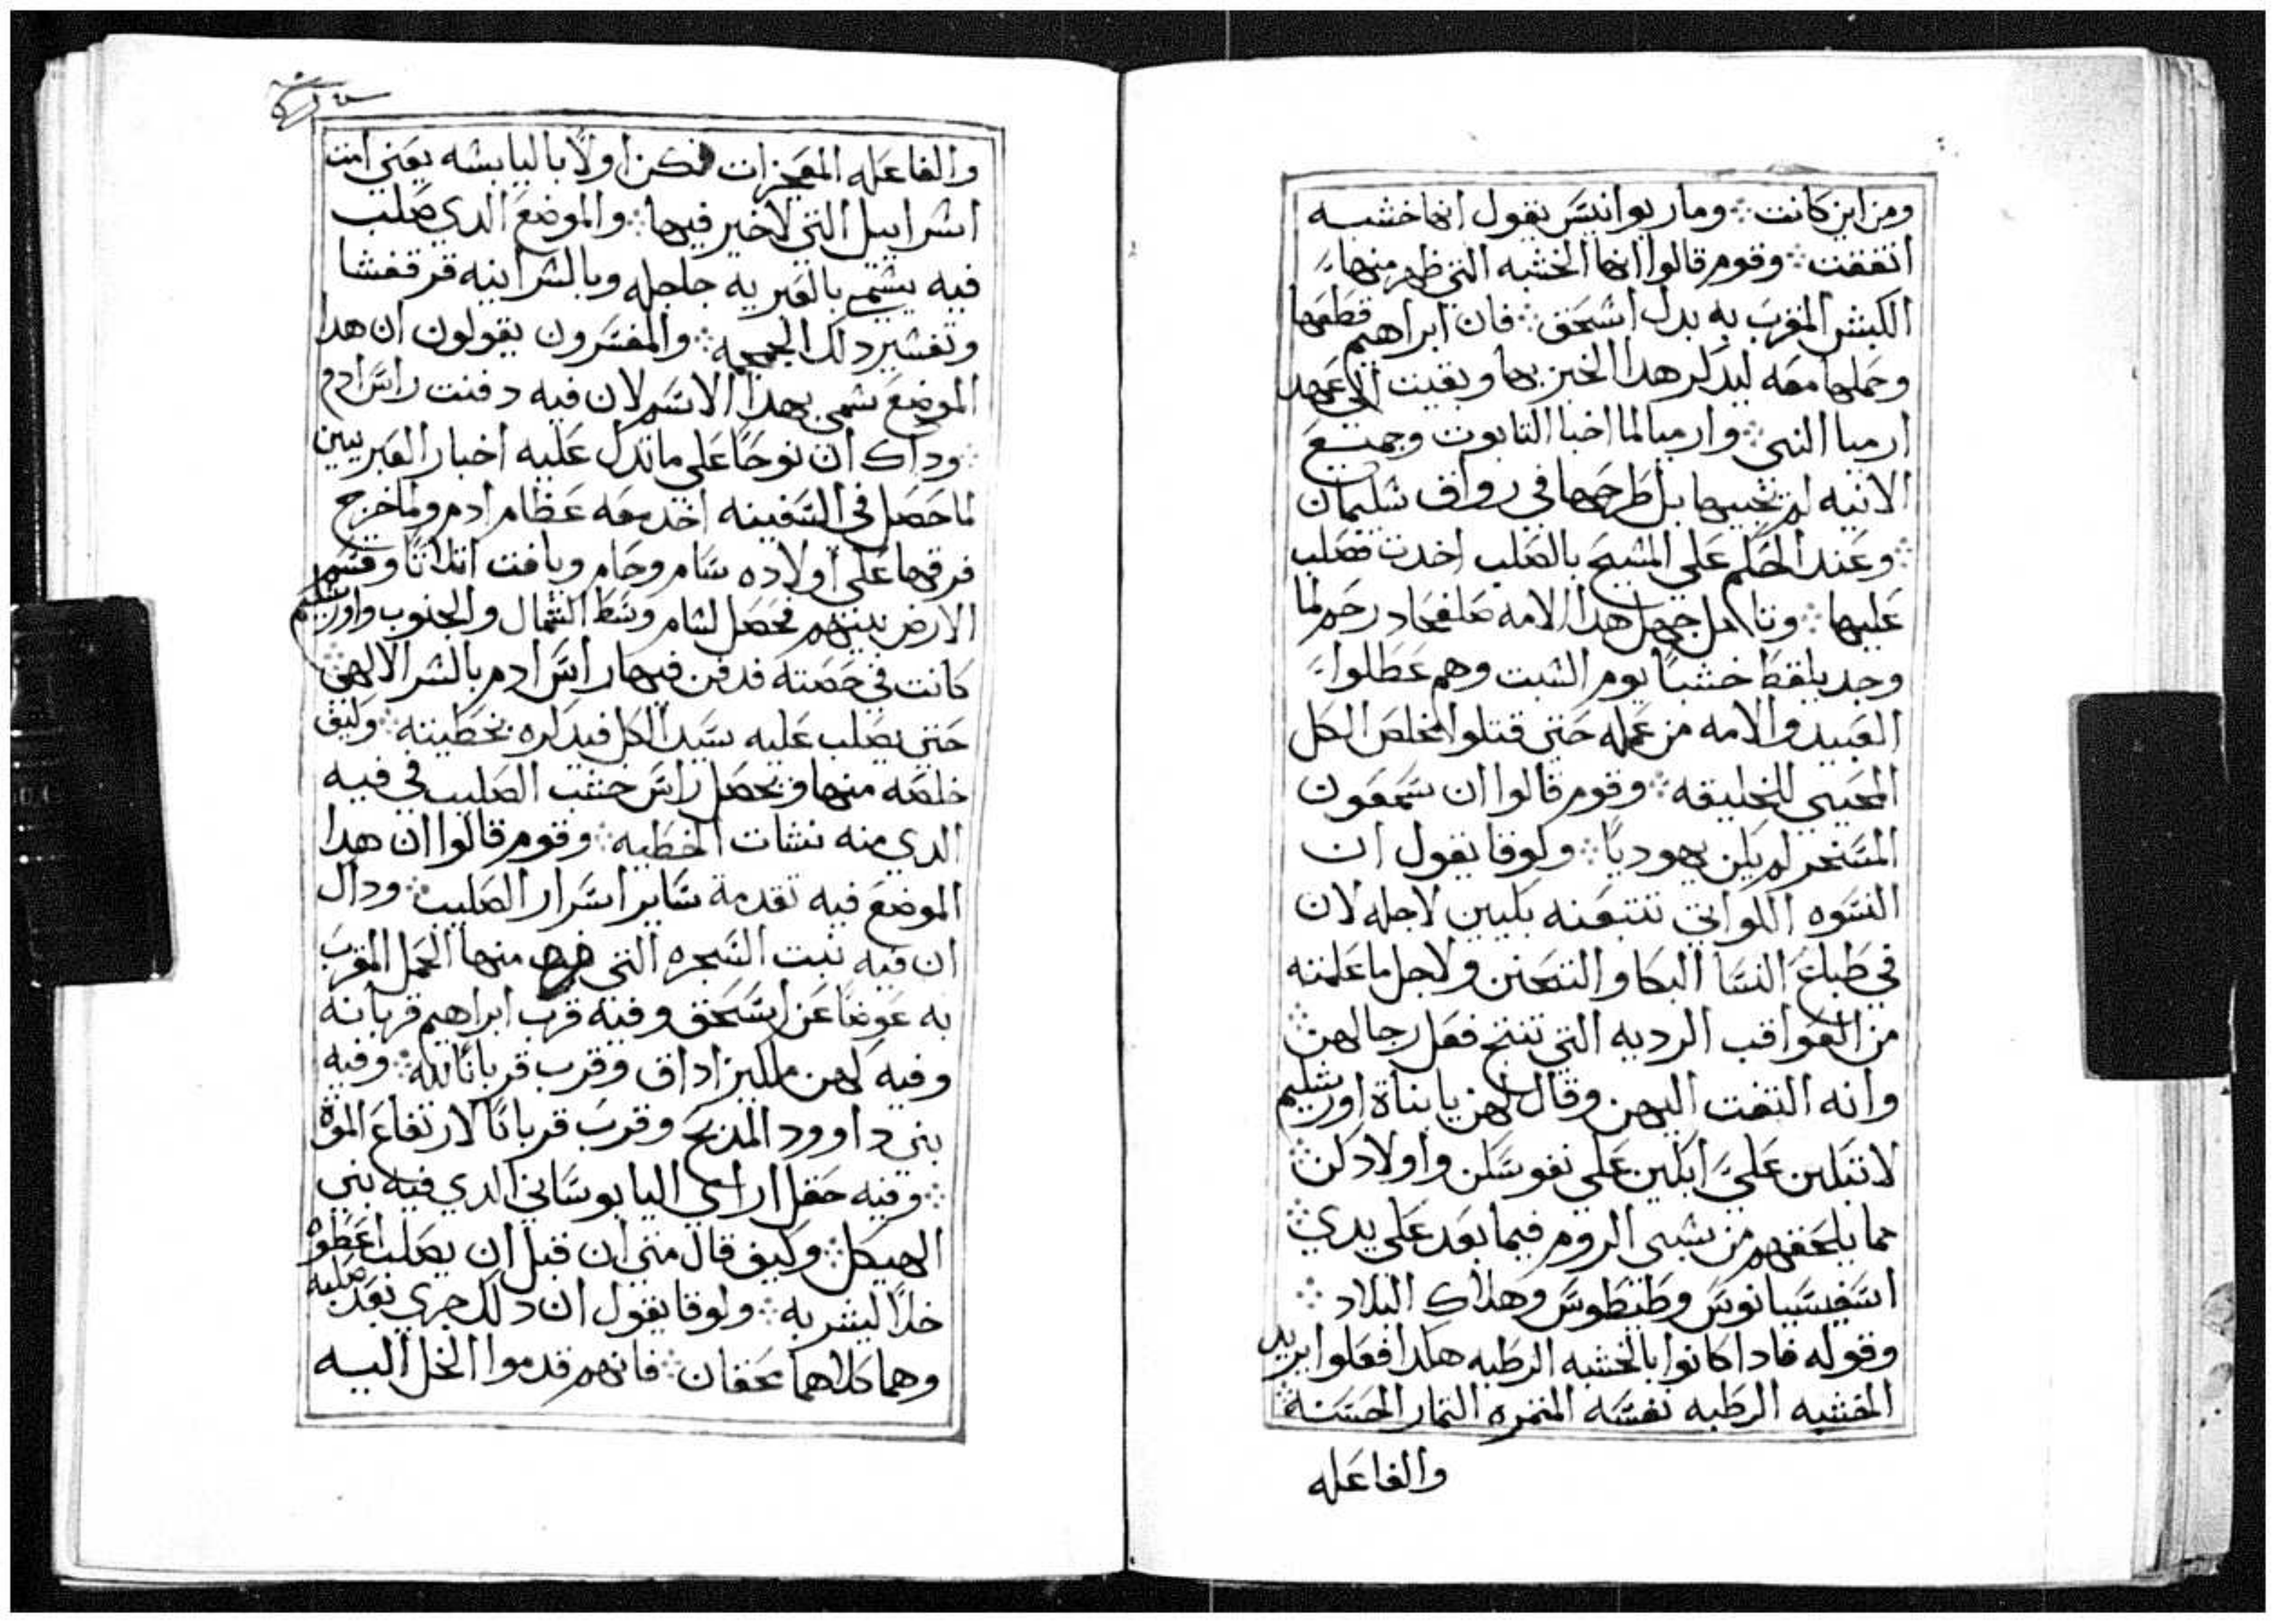 ومن اين كانت ⁘ ومار يوانيس يقول انها خشبه
اتفقت ⁘ وقوم قالوا انها الخشبه التي ظهر منها
الكبش المقرب به بدل اسحق ⁘ فان ابراهيم قطعها
وحملها معه ليدكر هدا الخبر بها وبقيت الى عهد
ارميا النبي ⁘ وارميا لما اخبا التابوت وجميع
الانيه لم يخبيها بل طرحها في رواق سليمان
⁘ وعند الحكم على المسيح بالصلب اخدت فصلب
عليها ⁘ وتامل جهل هدا الامه رحم لما
وجد يلقط خشبا يوم السبت وهم عطلوا
العبيد والامه من عمله حتى قتلوا مخلص الكل
المحيي للخليقه ⁘ وقوم قالوا ان سمعون
المسخر لم يكن يهوديا ⁘ ولوقا يقول ان
النسوه اللواتي تتبعنه بكيين لاجله لان
في طباع النسا البكا والتحنن ولاجل ما علمنه
من العواقب الرديه التي تنتج فعل رجالهن
وانه التفت اليهن وقال لهن يا بناة اورشليم
لا تبكين علي ابكين على نفوسكن واولادكن ⁘
مما يلحقهم من سبي الروم فيما بعد على يدي ⁘
اسفيسيانوس وطيطوس وهلاك البلاد ⁘
وقوله فادا كانوا بالخشبه الرطبه هكدا فعلوا يريد
الخشبه الرطبه نفسه المثمره الثمار الحسنة ⁘
والفاعله
والفاعله المعجزات فكن اولا باليابسه يعني امت
اسراييل التي لا خير فيها ⁘ والموضع الدي صلب
فيه يسمى بالعبريه جلجله وبالسرانيه قرقفسا
وتفسير دلك الجمجمه ⁘ والمفسرون يقولون ان هدا
الموضع سمي بهدا الاسم لان فيه دفنت راس ادم
⁘ وداك ان نوحا على ما تدل عليه اخبار العبريين
لما حصل في السفينه اخد معه عظام ادم ولما خرج
فرقها على اولاده سام وحام ويافت اتلاثا وقسم
الارض بينهم فحصل لسام وسط الشمال والجنوب واورشليم
كانت في حصته فدفن فيها راس ادم بالسر الالهي ⁘
حتى يصلب عليه سيد الكل فيدكره بخطيته ⁘ وكيف
خلصه منها ويحصل راس خشب الصليب في فيه
الدي منه نشات الخطيه ⁘ وقوم قالوا ان هدا
الموضع فيه تقدمة ساير اسرار الصليب ⁘ وداك
ان فيه نبت الشجره التي خرج منها الحمل المقرب
به عوضا عن اسحق وفيه قرب ابراهيم قربانه
وفيه كهن ملكيزاداق وقرب قربانا لله ⁘ وفيه
بنى داوود المدبح وقرب قربانا لارتفاع الموة
⁘ وفيه حقل اراعي اليابوساني الدي فيه بني
الهيكل ⁘ وكيف قال متى ان قبل ان يصلب اعطوه
خلا ليشربه ⁘ ولوقا يقول ان دلك جرى بعد صلبه
وهما كلاهما محقان ⁘ فانهم قدموا الخل اليه